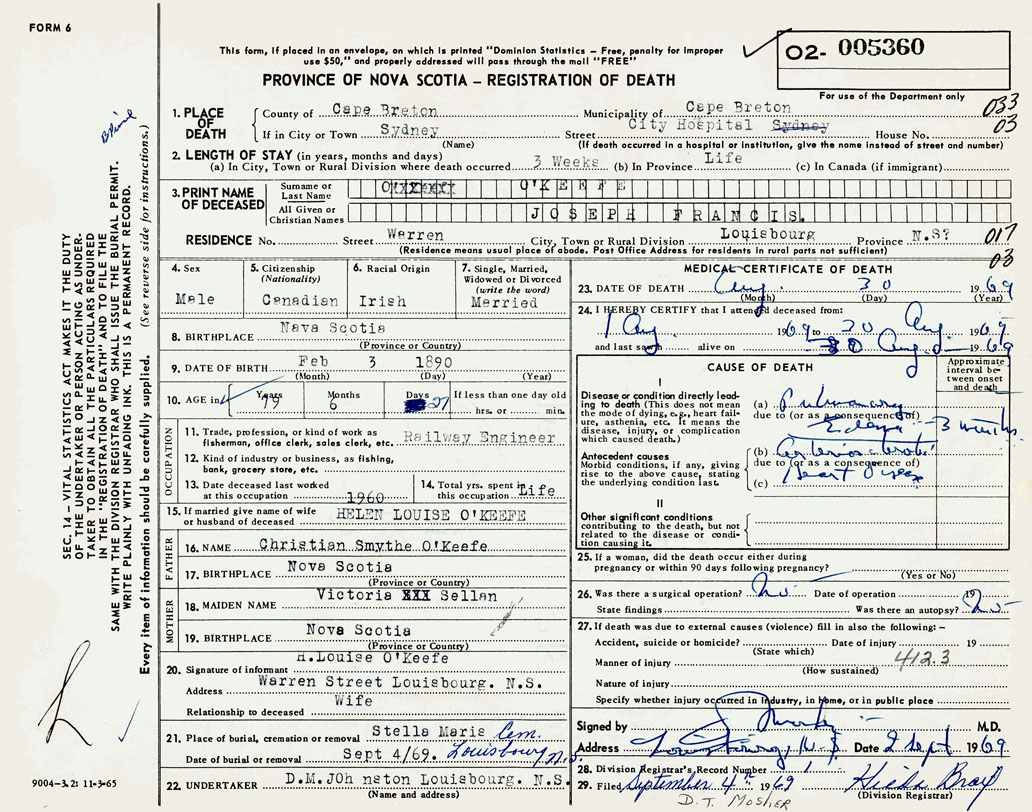 FORM 6
This form, if placed in an envelope, on which is printed "Dominion Statistics – Free, penalty for improper
use $50," and properly addressed will pass through the mail "FREE"
PROVINCE OF NOVA SCOTIA – REGISTRATION OF DEATH
O2- 005360
For use of the Department only
1. PLACE OF DEATH
County of Cape Breton Municipality of Cape Breton 033
If in City or Town Sydney Street City Hospital Sydney House No. 03
(Name) (If death occurred in a hospital or institution, give the name instead of street and number)
2. LENGTH OF STAY (in years, months and days)
(a) In City, Town or Rural Division where death occurred 3 Weeks (b) In Province Life (c) In Canada (if immigrant)
3. PRINT NAME OF DECEASED
Surname or Last Name O'KEEFE
All Given or Christian Names JOSEPH FRANCIS.
RESIDENCE No. Street Warren City, Town or Rural Division Louisbourg Province N.S? 017
(Residence means usual place of abode. Post Office Address for residents in rural parts not sufficient) 03
4. Sex
Male
5. Citizenship
(Nationality)
Canadian
6. Racial Origin
Irish
7. Single, Married,
Widowed or Divorced
(write the word)
Married
8. BIRTHPLACE Nova Scotia
(Province or Country)
9. DATE OF BIRTH Feb 3 1890
(Month) (Day) (Year)
10. AGE in Years Months Days If less than one day old
79 6 27 hrs. or min.
OCCUPATION
11. Trade, profession, or kind of work as
fisherman, office clerk, sales clerk, etc. Railway Engineer
12. Kind of industry or business, as fishing,
bank, grocery store, etc.
13. Date deceased last worked
at this occupation 1960
14. Total yrs. spent in
this occupation Life
15. If married give name of wife
or husband of deceased HELEN LOUISE O'KEEFE
FATHER
16. NAME Christian Smythe O'Keefe
17. BIRTHPLACE Nova Scotia
(Province or Country)
MOTHER
18. MAIDEN NAME Victoria XXX Sellan
19. BIRTHPLACE Nova Scotia
(Province or Country)
20. Signature of informant H.Louise O'Keefe
Address Warren Street Louisbourg. N.S.
Relationship to deceased Wife
21. Place of burial, cremation or removal Stella Maris Cem.
Date of burial or removal Sept 4/69. Louisbourg N.S.
22. UNDERTAKER D.M.JOh nston Louisbourg. N.S.
(Name and address)
MEDICAL CERTIFICATE OF DEATH
23. DATE OF DEATH Aug. 30 1969
(Month) (Day) (Year)
24. I HEREBY CERTIFY that I attended deceased from:
1 Aug 1969 to 30 Aug 1969
and last saw alive on 30 Aug 1969
CAUSE OF DEATH
Approximate
interval be-
tween onset
and death
I
Disease or condition directly lead-
ing to death (This does not mean
the mode of dying, e.g., heart fail-
ure, asthenia, etc. It means the
disease, injury, or complication
which caused death.)
(a) Pulmonary
due to (or as a consequence of)
Edema 3 months
Antecedent causes
Morbid conditions, if any, giving
rise to the above cause, stating
the underlying condition last.
(b) Arteriosclerotic
due to (or as a consequence of)
(c) Heart Disease
II
Other significant conditions
contributing to the death, but not
related to the disease or condi-
tion causing it.
25. If a woman, did the death occur either during
pregnancy or within 90 days following pregnancy?
(Yes or No)
26. Was there a surgical operation? No Date of operation 19
State findings Was there an autopsy? No
27. If death was due to external causes (violence) fill in also the following: –
Accident, suicide or homicide? Date of injury 19
(State which)
Manner of injury 412.3
(How sustained)
Nature of injury
Specify whether injury occurred in Industry, in home, or in public place
Signed by M.D.
Address Louisbourg, N.S. Date 2 Sept 1969
28. Division Registrar's Record Number 1
29. Filed September 4th 1969
(Division Registrar)
D. T. MOSHER
SEC. 14 – VITAL STATISTICS ACT MAKES IT THE DUTY
OF THE UNDERTAKER OR PERSON ACTING AS UNDER-
TAKER TO OBTAIN ALL THE PARTICULARS REQUIRED
IN THE "REGISTRATION OF DEATH" AND TO FILE THE
SAME WITH THE DIVISION REGISTRAR WHO SHALL ISSUE THE BURIAL PERMIT.
WRITE PLAINLY WITH UNFADING INK. THIS IS A PERMANENT RECORD.
Every item of information should be carefully supplied. (See reverse side for instructions.)
9004–3.2: 11-3-65